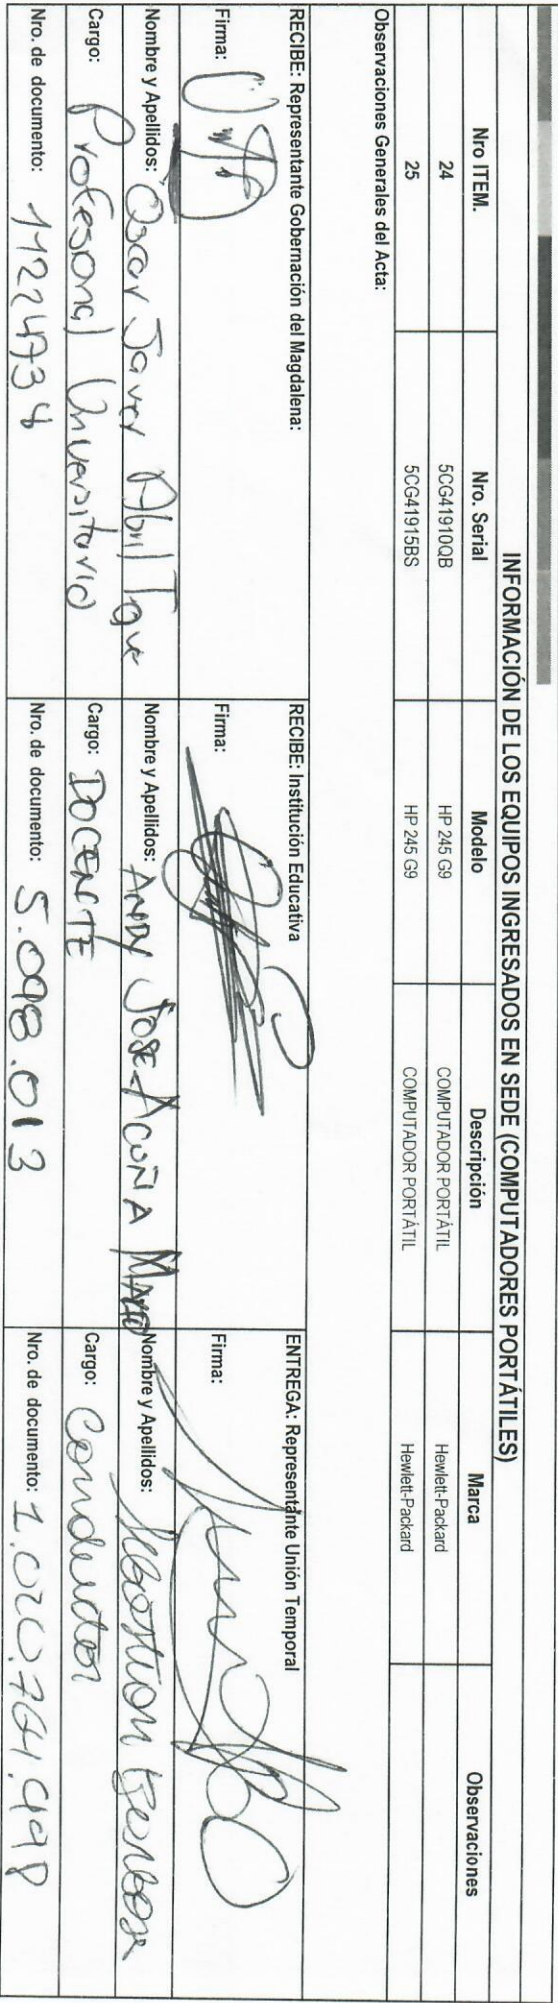 INFORMACIÓN DE LOS EQUIPOS INGRESADOS EN SEDE (COMPUTADORES PORTÁTILES)
Nro ITEM. Nro. Serial Modelo Descripción Marca Observaciones
24 5CG41910QB HP 245 G9 COMPUTADOR PORTÁTIL Hewlett-Packard
25 5CG41915BS HP 245 G9 COMPUTADOR PORTÁTIL Hewlett-Packard
Observaciones Generales del Acta:
RECIBE: Representante Gobernación del Magdalena:
Firma:
Nombre y Apellidos: Oscar Javer Abril
Cargo: Profesional Universitario
Nro. de documento:
RECIBE: Institución Educativa
Firma:
Nombre y Apellidos: ANDY JOSE ACUÑA
Cargo: DOCENTE
Nro. de documento: 5.098.013
ENTREGA: Representante Unión Temporal
Firma:
Nombre y Apellidos:
Cargo: Conductor
Nro. de documento: